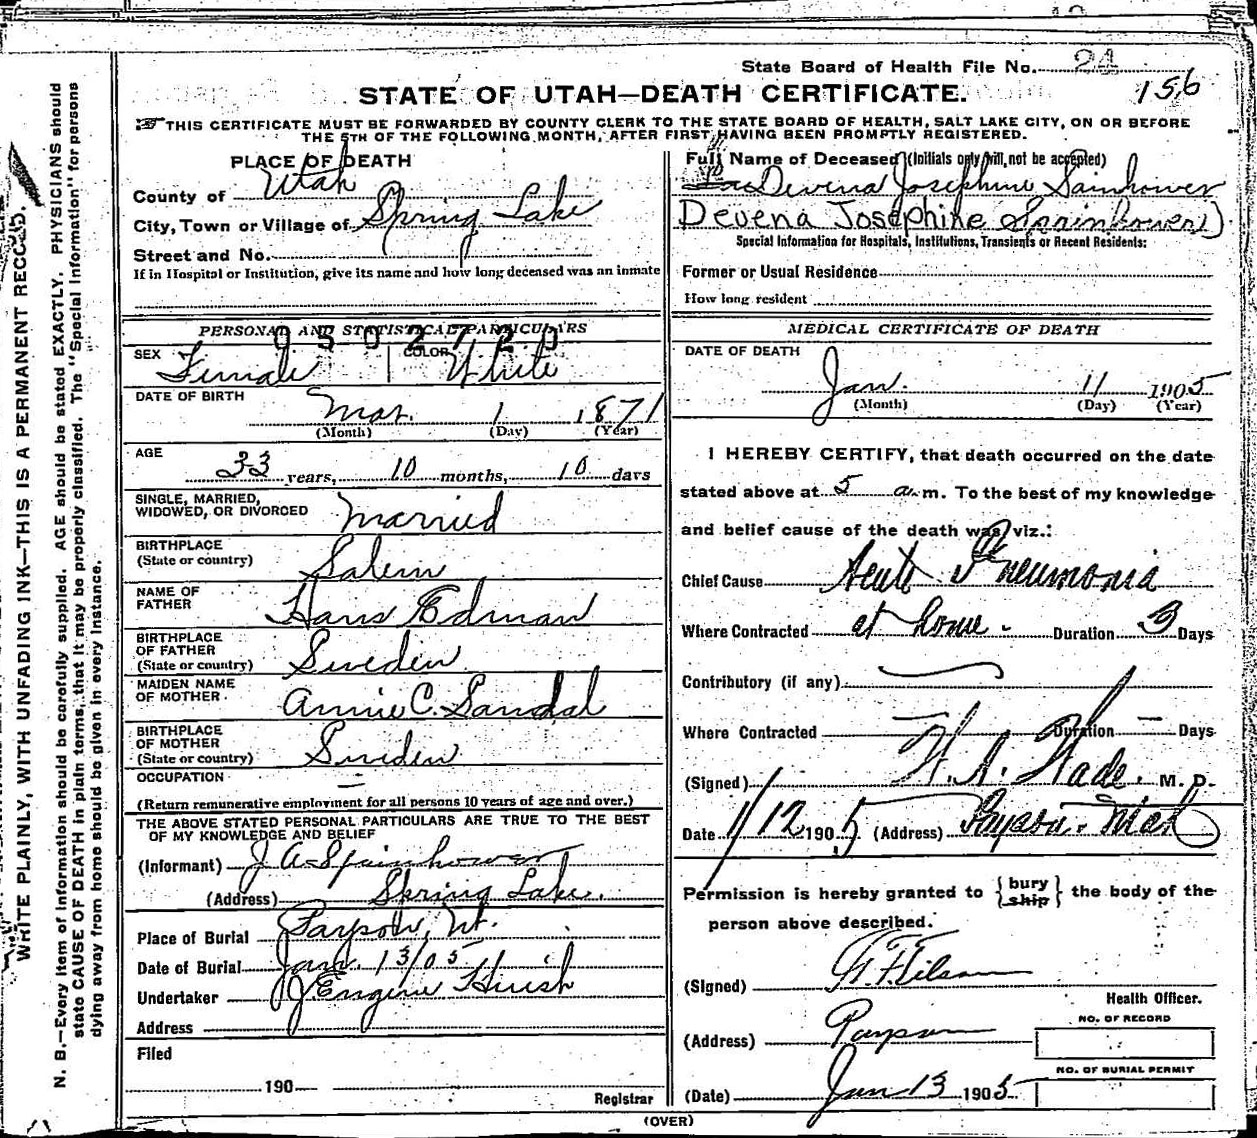 State Board of Health File No. 24
156
STATE OF UTAH—DEATH CERTIFICATE.
THIS CERTIFICATE MUST BE FORWARDED BY COUNTY CLERK TO THE STATE BOARD OF HEALTH, SALT LAKE CITY, ON OR BEFORE
THE 5TH OF THE FOLLOWING MONTH, AFTER FIRST HAVING BEEN PROMPTLY REGISTERED.
WRITE PLAINLY, WITH UNFADING INK—THIS IS A PERMANENT RECORD.
N. B.—Every item of information should be carefully supplied. AGE should be stated EXACTLY. PHYSICIANS should
state CAUSE OF DEATH in plain terms, that it may be properly classified. The "Special Information" for persons
dying away from home should be given in every instance.
PLACE OF DEATH
County of Utah
City, Town or Village of Spring Lake
Street and No.
If in Hospital or Institution, give its name and how long deceased was an inmate
PERSONAL AND STATISTICAL PARTICULARS
0502720
SEX Female COLOR White
DATE OF BIRTH Mar. 1 1871
(Month) (Day) (Year)
AGE 33 years, 10 months, 10 days
SINGLE, MARRIED,
WIDOWED, OR DIVORCED Married
BIRTHPLACE
(State or country) Salem
NAME OF
FATHER Hans Edman
BIRTHPLACE
OF FATHER
(State or country) Sweden
MAIDEN NAME
OF MOTHER Annie C. Sandal
BIRTHPLACE
OF MOTHER
(State or country) Sweden
OCCUPATION
(Return remunerative employment for all persons 10 years of age and over.)
THE ABOVE STATED PERSONAL PARTICULARS ARE TRUE TO THE BEST
OF MY KNOWLEDGE AND BELIEF
(Informant) J A Spainhower
(Address) Spring Lake.
Place of Burial Payson, Ut.
Date of Burial Jan. 13/05
Undertaker J Eugene Huish
Address
Filed
190
Registrar
Full Name of Deceased (Initials only will not be accepted)
Devena Josephine Sainhower
Devena Josephine Spainhower)
Special Information for Hospitals, Institutions, Transients or Recent Residents:
Former or Usual Residence
How long resident
MEDICAL CERTIFICATE OF DEATH
DATE OF DEATH
Jan. 11 1905
(Month) (Day) (Year)
I HEREBY CERTIFY, that death occurred on the date
stated above at 5 a.m. To the best of my knowledge
and belief cause of the death was, viz.:
Chief Cause Acute Pneumonia
Where Contracted at home. Duration 3 Days
Contributory (if any)
Where Contracted — Duration — Days
(Signed) Wade. M. D.
Date 1/12 1905 (Address) Payson.
Permission is hereby granted to {bury ship} the body of the
person above described.
(Signed)
Health Officer.
(Address) Payson
NO. OF RECORD
NO. OF BURIAL PERMIT
(Date) Jan 13 1905
(OVER)